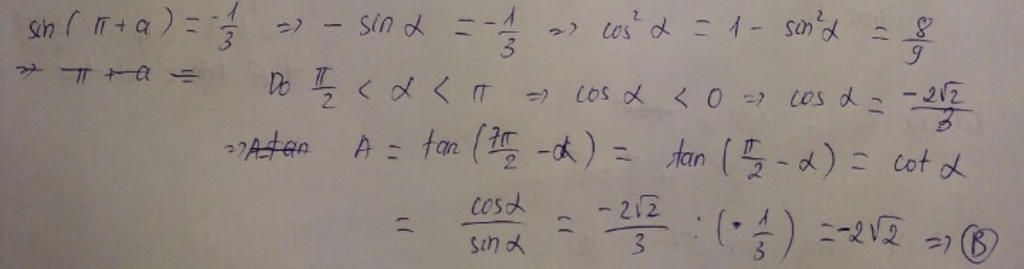 sin(π+a) = -1/3 => - sin α = -1/3 => cos² α = 1 - sin²α = 8/9
=> π + a = Do π/2 < α < π => cos α < 0 => cos α = -2√2/3
=> A=tan A = tan (7π/2 - α) = tan (π/2 - α) = cot α
= cosα/sinα = -2√2/3 : (· 1/3) = -2√2 => B